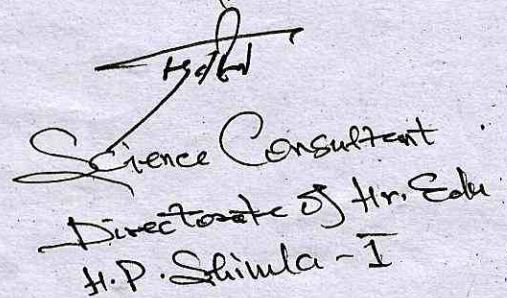 Science Consultant
Directorate of Hr. Edu
H.P. Shimla - I